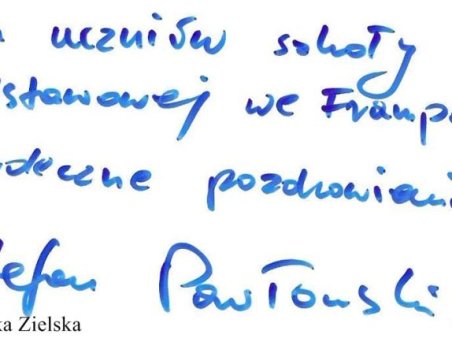 uczniów szkoły
stawowej we Framp
deczne pozdrowieni
efan Pawłowski
ka Zielska